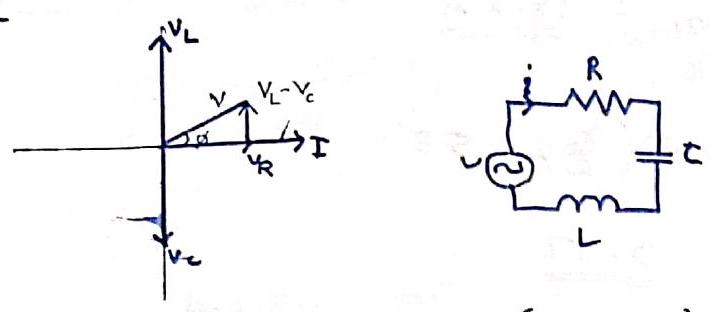 VL
V
VL-Vc
φ
I
VR
Vc
i
R
υ
C
L